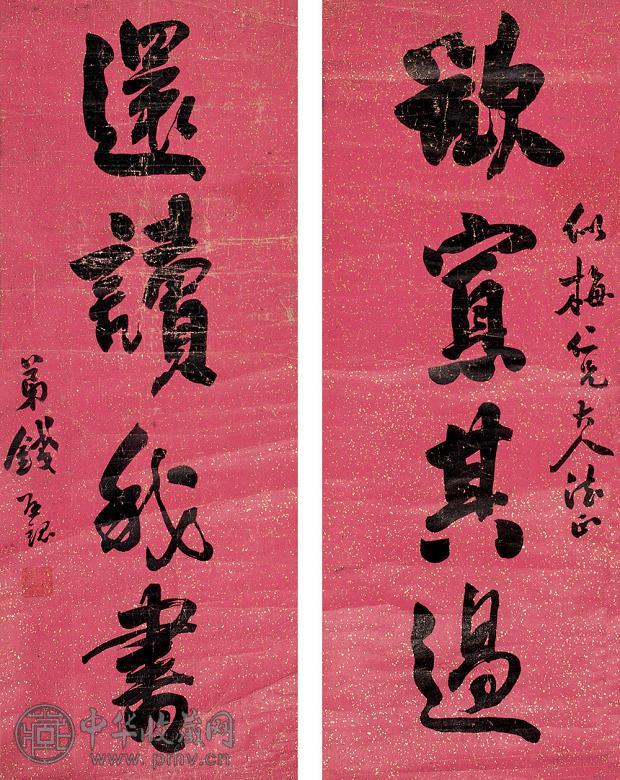 似梅仁兄大人法正
欲寡其過
還讀我書
弟錢
中华收藏网
www.pmv.cn